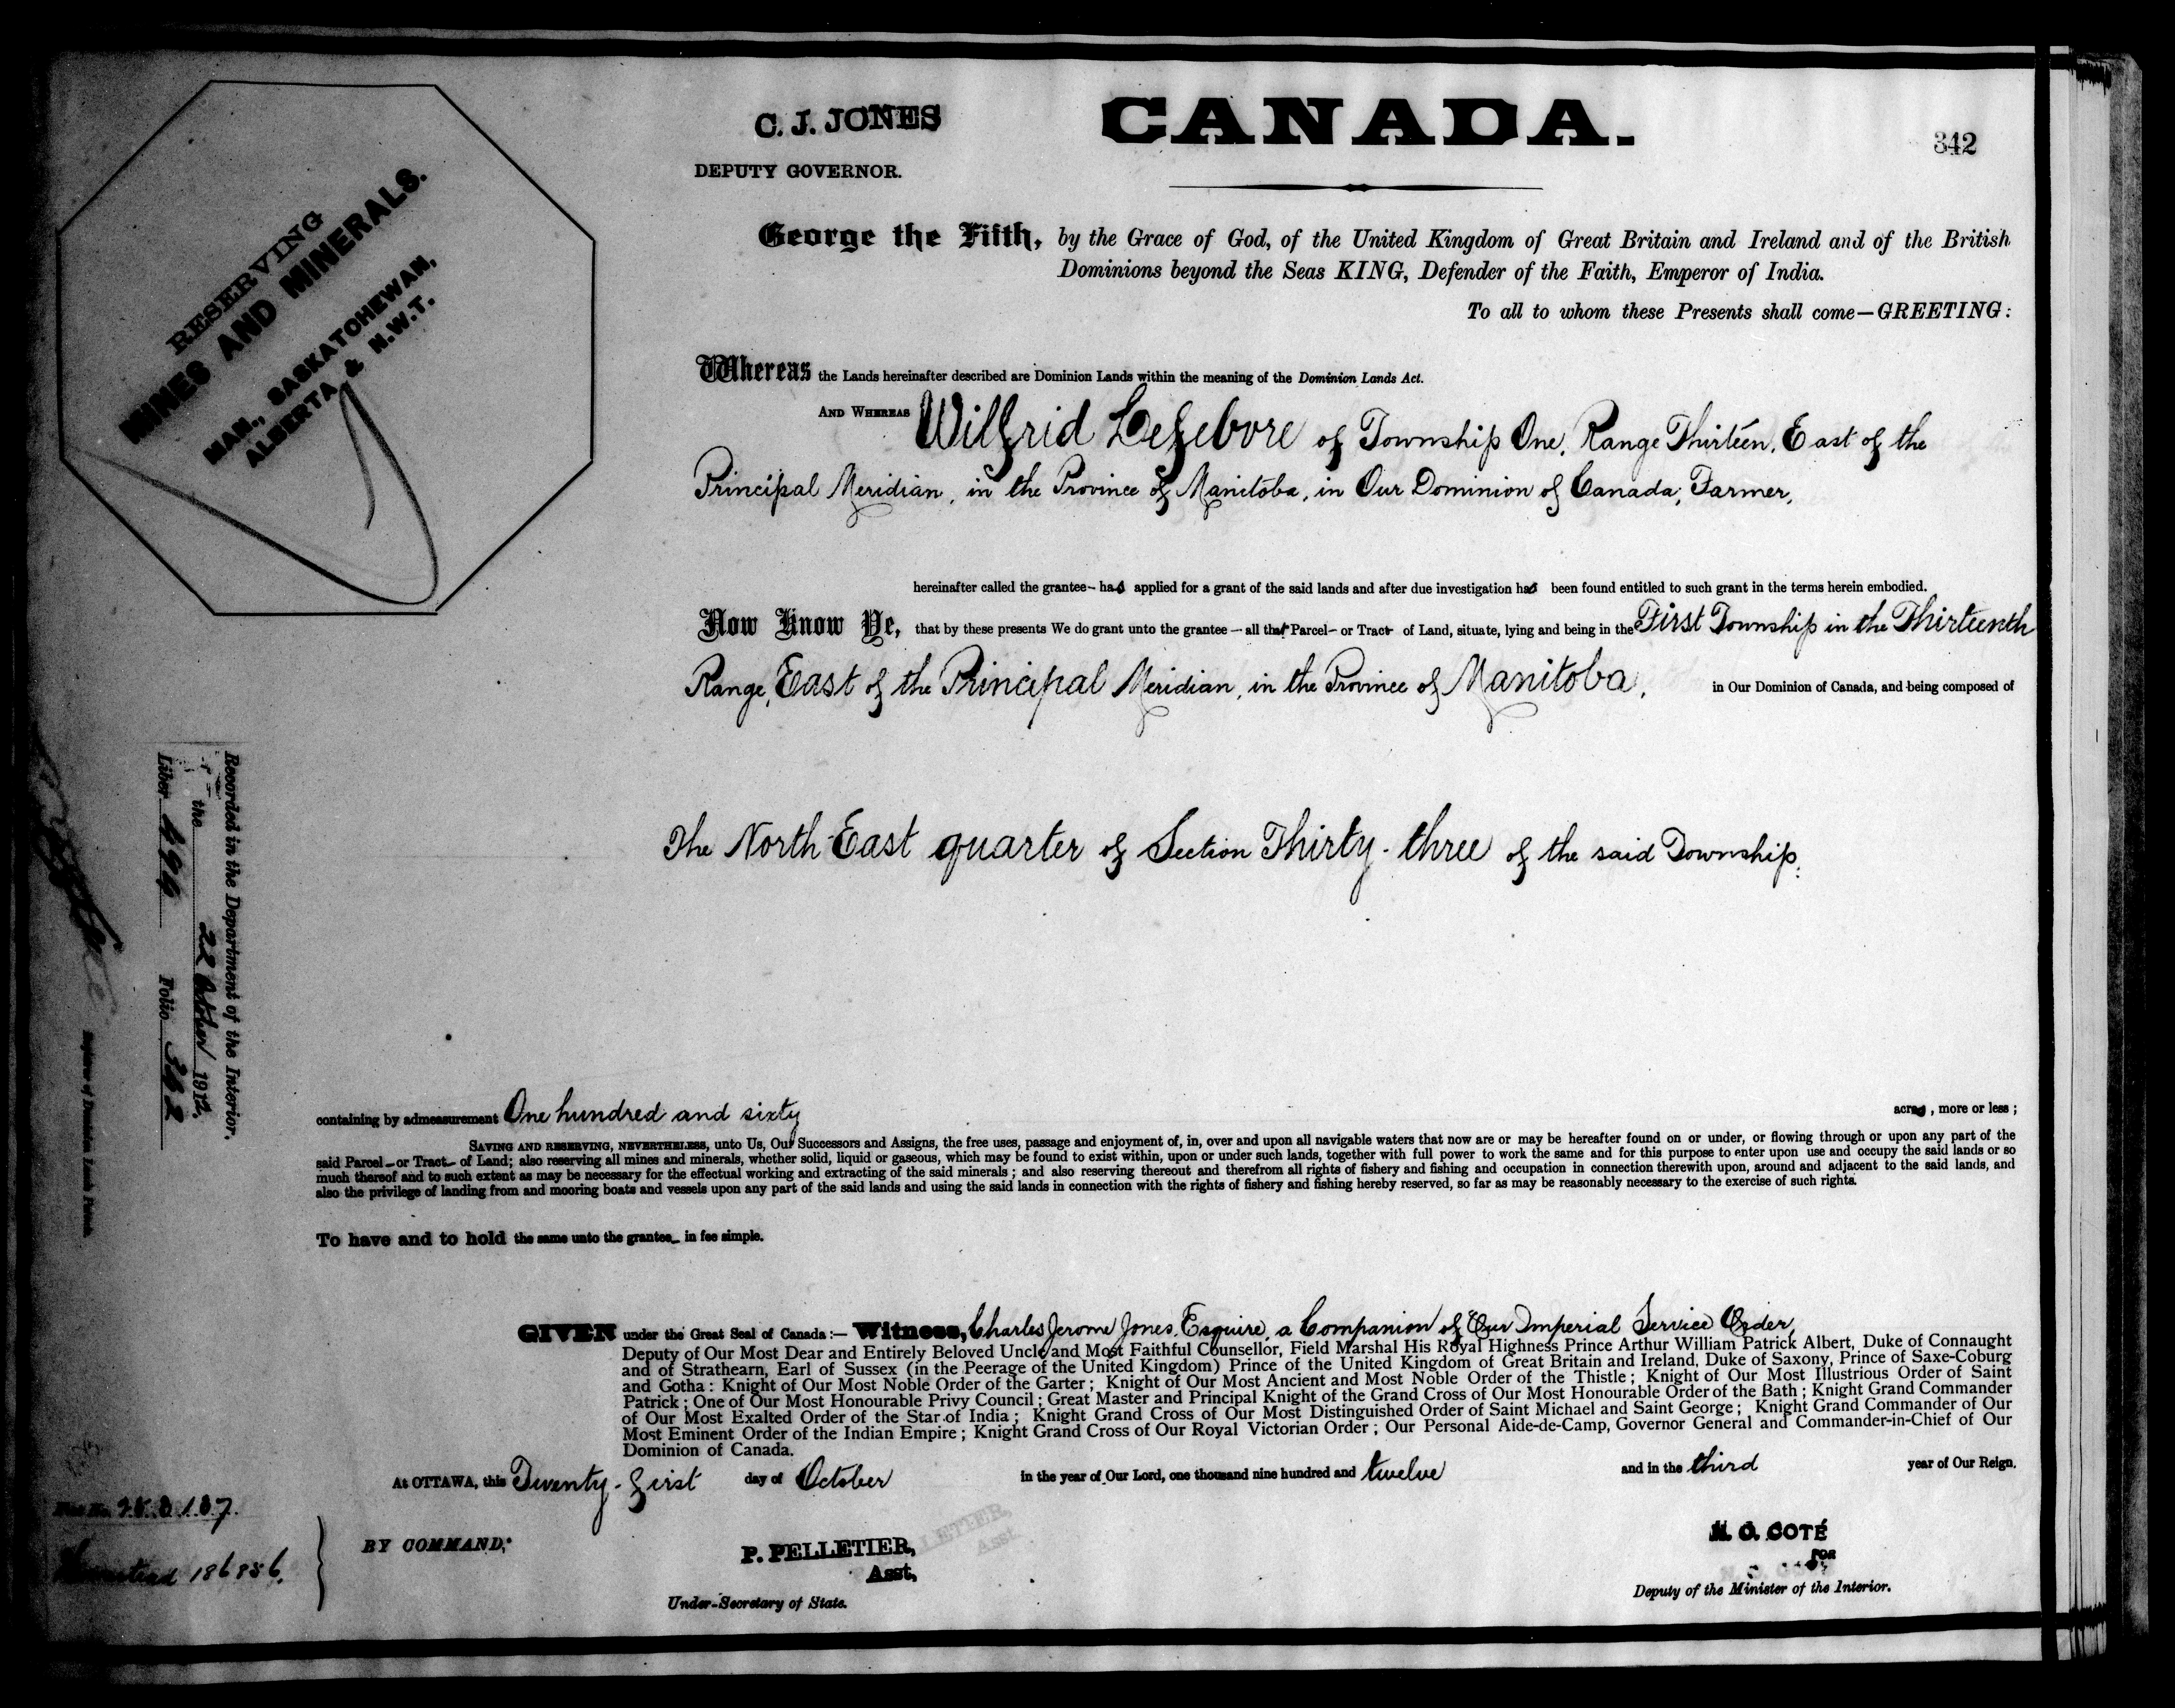 C. J. JONES
DEPUTY GOVERNOR.
CANADA.
342
RESERVING
MINES AND MINERALS.
MAN., SASKATCHEWAN,
ALBERTA & N.W.T.
George the Fifth, by the Grace of God, of the United Kingdom of Great Britain and Ireland and of the British
Dominions beyond the Seas KING, Defender of the Faith, Emperor of India.
To all to whom these Presents shall come—GREETING:
Whereas the Lands hereinafter described are Dominion Lands within the meaning of the Dominion Lands Act.
AND WHEREAS Wilfrid Lefebvre of Township One, Range Thirteen, East of the
Principal Meridian, in the Province of Manitoba, in Our Dominion of Canada, Farmer,
hereinafter called the grantee— has applied for a grant of the said lands and after due investigation has been found entitled to such grant in the terms herein embodied.
Now Know Ye, that by these presents We do grant unto the grantee — all that Parcel— or Tract of Land, situate, lying and being in the First Township in the Thirteenth
Range, East of the Principal Meridian, in the Province of Manitoba, in Our Dominion of Canada, and being composed of
The North East quarter of Section Thirty-three of the said Township.
Recorded in the Department of the Interior.
the 22 October 1912.
Liber Folio 342
containing by admeasurement One hundred and sixty acres, more or less;
SAVING AND RESERVING, NEVERTHELESS, unto Us, Our Successors and Assigns, the free uses, passage and enjoyment of, in, over and upon all navigable waters that now are or may be hereafter found on or under, or flowing through or upon any part of the
said Parcel— or Tract— of Land; also reserving all mines and minerals, whether solid, liquid or gaseous, which may be found to exist within, upon or under such lands, together with full power to work the same and for this purpose to enter upon use and occupy the said lands or so
much thereof and to such extent as may be necessary for the effectual working and extracting of the said minerals; and also reserving thereout and therefrom all rights of fishery and fishing and occupation in connection therewith upon, around and adjacent to the said lands, and
also the privilege of landing from and mooring boats and vessels upon any part of the said lands and using the said lands in connection with the rights of fishery and fishing hereby reserved, so far as may be reasonably necessary to the exercise of such rights.
To have and to hold the same unto the grantee— in fee simple.
GIVEN under the Great Seal of Canada:— Witness, Charles Jerome Jones, Esquire, a Companion of Our Imperial Service Order,
Deputy of Our Most Dear and Entirely Beloved Uncle and Most Faithful Counsellor, Field Marshal His Royal Highness Prince Arthur William Patrick Albert, Duke of Connaught
and of Strathearn, Earl of Sussex (in the Peerage of the United Kingdom) Prince of the United Kingdom of Great Britain and Ireland, Duke of Saxony, Prince of Saxe-Coburg
and Gotha: Knight of Our Most Noble Order of the Garter; Knight of Our Most Ancient and Most Noble Order of the Thistle; Knight of Our Most Illustrious Order of Saint
Patrick; One of Our Most Honourable Privy Council; Great Master and Principal Knight of the Grand Cross of Our Most Honourable Order of the Bath; Knight Grand Commander
of Our Most Exalted Order of the Star of India; Knight Grand Cross of Our Most Distinguished Order of Saint Michael and Saint George; Knight Grand Commander of Our
Most Eminent Order of the Indian Empire; Knight Grand Cross of Our Royal Victorian Order; Our Personal Aide-de-Camp, Governor General and Commander-in-Chief of Our
Dominion of Canada.
At OTTAWA, this Twenty-first day of October in the year of Our Lord, one thousand nine hundred and twelve and in the third year of Our Reign.
Homestead 186856.
BY COMMAND,
P. PELLETIER,
Asst.
Under-Secretary of State.
N. O. COTÉ
FOR
Deputy of the Minister of the Interior.